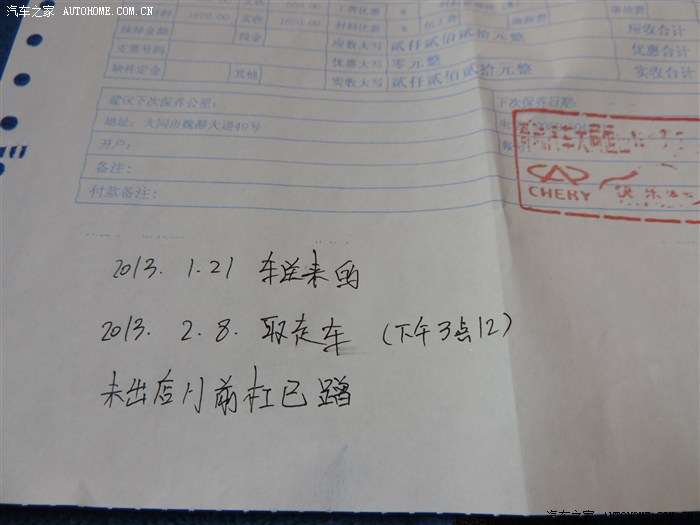 汽车之家 AUTOHOME.COM.CN
实收
工费优惠
应收合计
应收大写 贰仟贰佰贰拾元整
优惠合计
支票号码
优惠大写 零元整
实收合计
缺件定金
其他
实收大写 贰仟贰佰贰拾元整
建议下次保养公里:
下次保养日期:
地址: 大同市魏都大道49号
开户:
备注:
CHERY
付款备注:
2013. 1.21 车送来的
2013. 2.8. 取走车 (下午3点12)
未出店门前杠已蹭
汽车之家 AUTOHOME.COM.CN